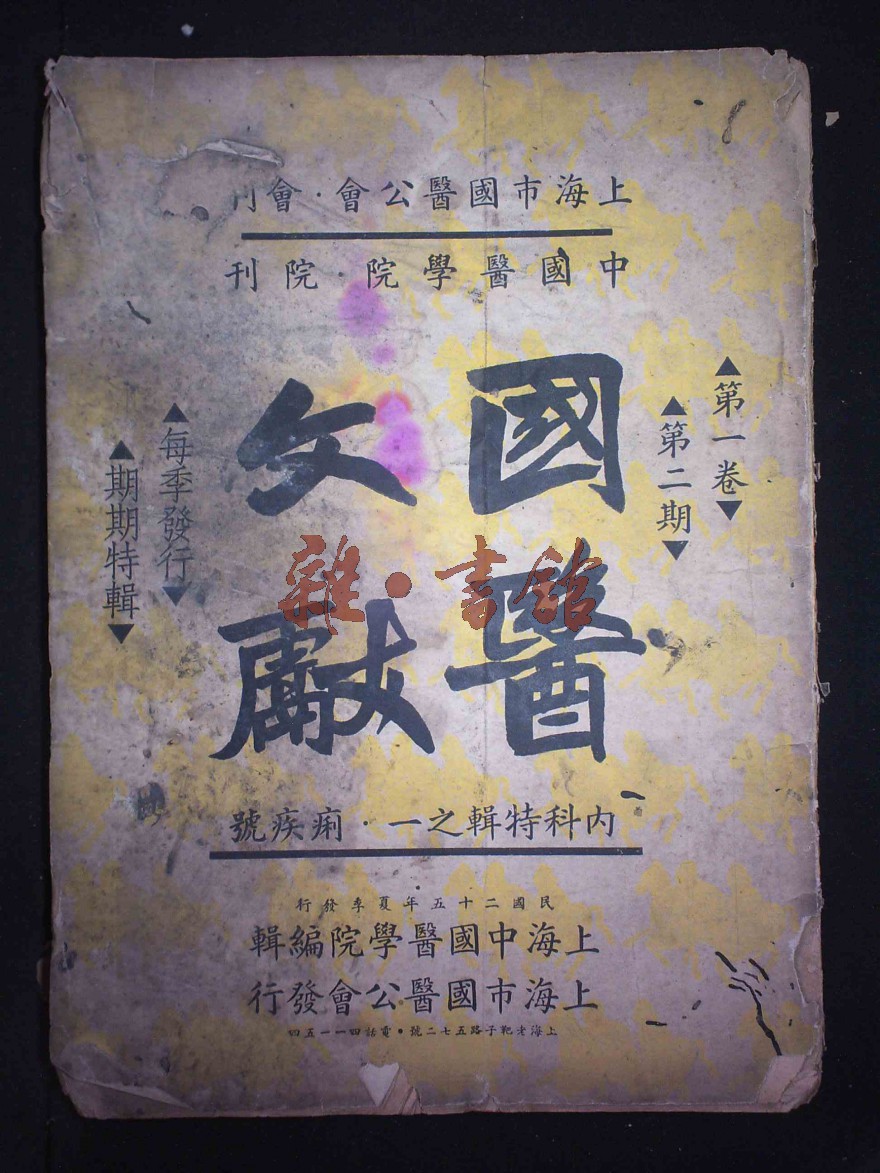 上海市國醫公會·會刊
中國醫學院·院刊
▲第一卷▼
▲第二期▼
國醫
文獻
▲每季發行▼
▲期期特輯▼
雜·書館
內科特輯之一·痢疾號
民國二十五年夏季發行
上海中國醫學院編輯
上海市國醫公會發行
上海老靶子路五七二號·電話四一一五四